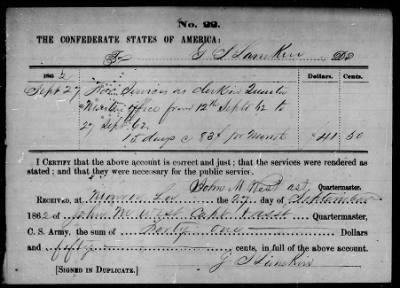 No. 22.
THE CONFEDERATE STATES OF AMERICA:
To G S Lamkin Dr
1862 Dollars. Cents.
Sept 27 For Services as clerk in Quarter
Master office from 12th Sept 62 to
27 Sept 62
15 days @ 83 per Month $41 50
I CERTIFY that the above account is correct and just; that the services were rendered as
stated; and that they were necessary for the public service.
John M West Quartermaster.
RECEIVED, at Monroe La the 27 day of September
1862 of John M West Capt & Asst Quartermaster,
C. S. Army, the sum of Forty One Dollars
and fifty cents, in full of the above account.
G S Lamkin
[SIGNED IN DUPLICATE.]